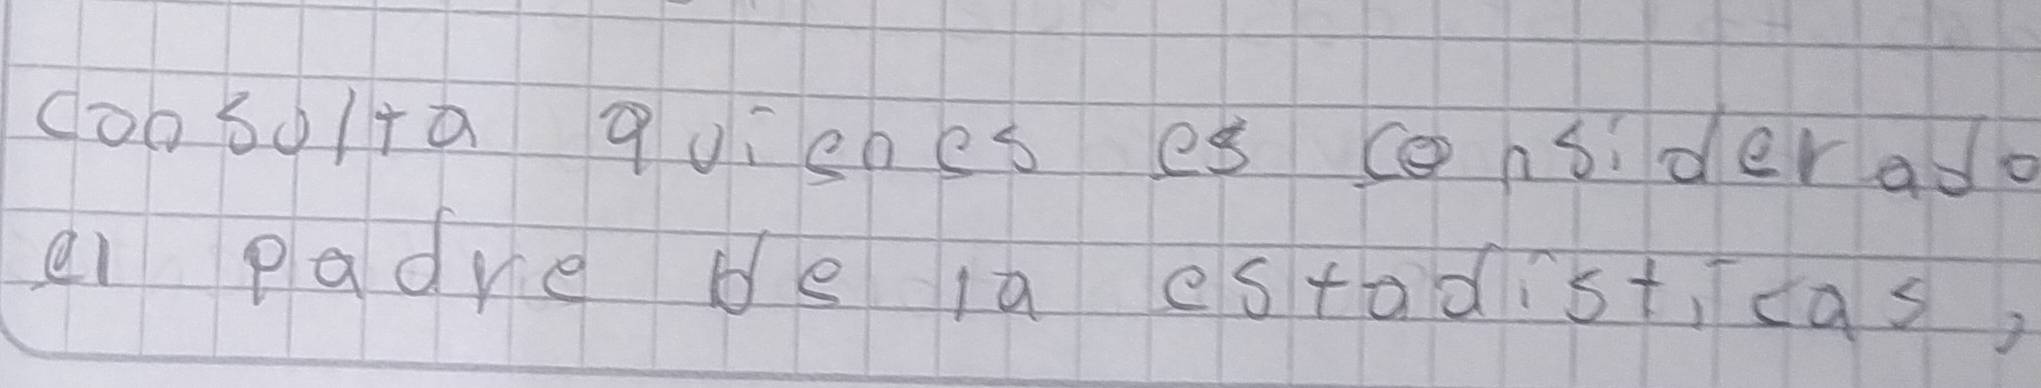 consulta quienes es considerado
el padre de la estadisticas,